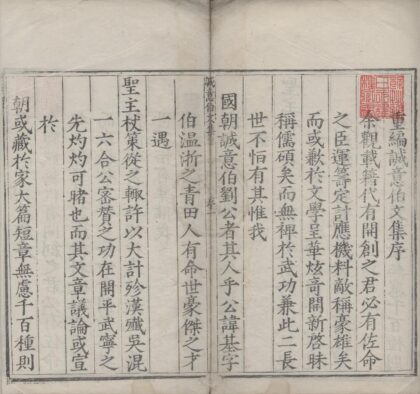 重編誠意伯文集序
余觀載籍代有開創之君必有佐命
之臣運籌定計應機料敵稱豪雄矣
而或歉於文學呈華炫奇開新啓昧
稱儒碩矣而無裨於武功兼此二長
世不怕有其惟我
國朝誠意伯劉公者其人乎公諱基字
伯温浙之青田人有命世豪傑之才
一遇
聖主杖策從之輙許以大計殄漢殱吳混
一六合公密贊之功在開平武寧之
先灼灼可睹也而其文章議論或宣
於
朝或藏於家大篇短章無慮千百種則
誠意伯文集